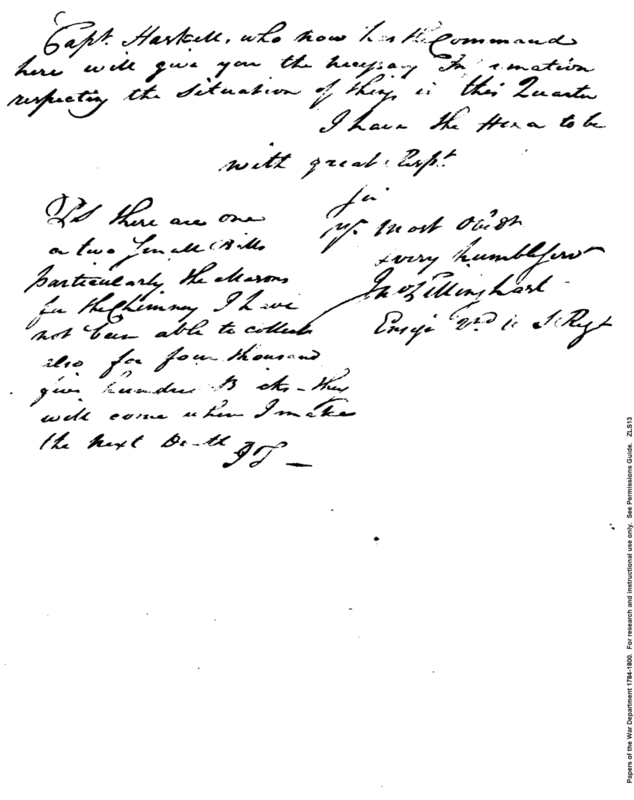 Capt. Haskell, who now has the Command
here will give you the necessary Information
respecting the Situation of things in this Quarter
I have the Honor to be
with great Respt
Sir
yr most Obedt
& very humble Servt
Jno Tillinghast
Ensign 2nd U S Regt
PS there are one
or two Small Bills
particularly the Masons
for the Chimney I have
not been able to collect
also for four thousand
five hundred Bricks - they
will come when I make
the next
JT —
Papers of the War Department 1784-1800. For research and instructional use only. See Permissions Guide. ZLS13